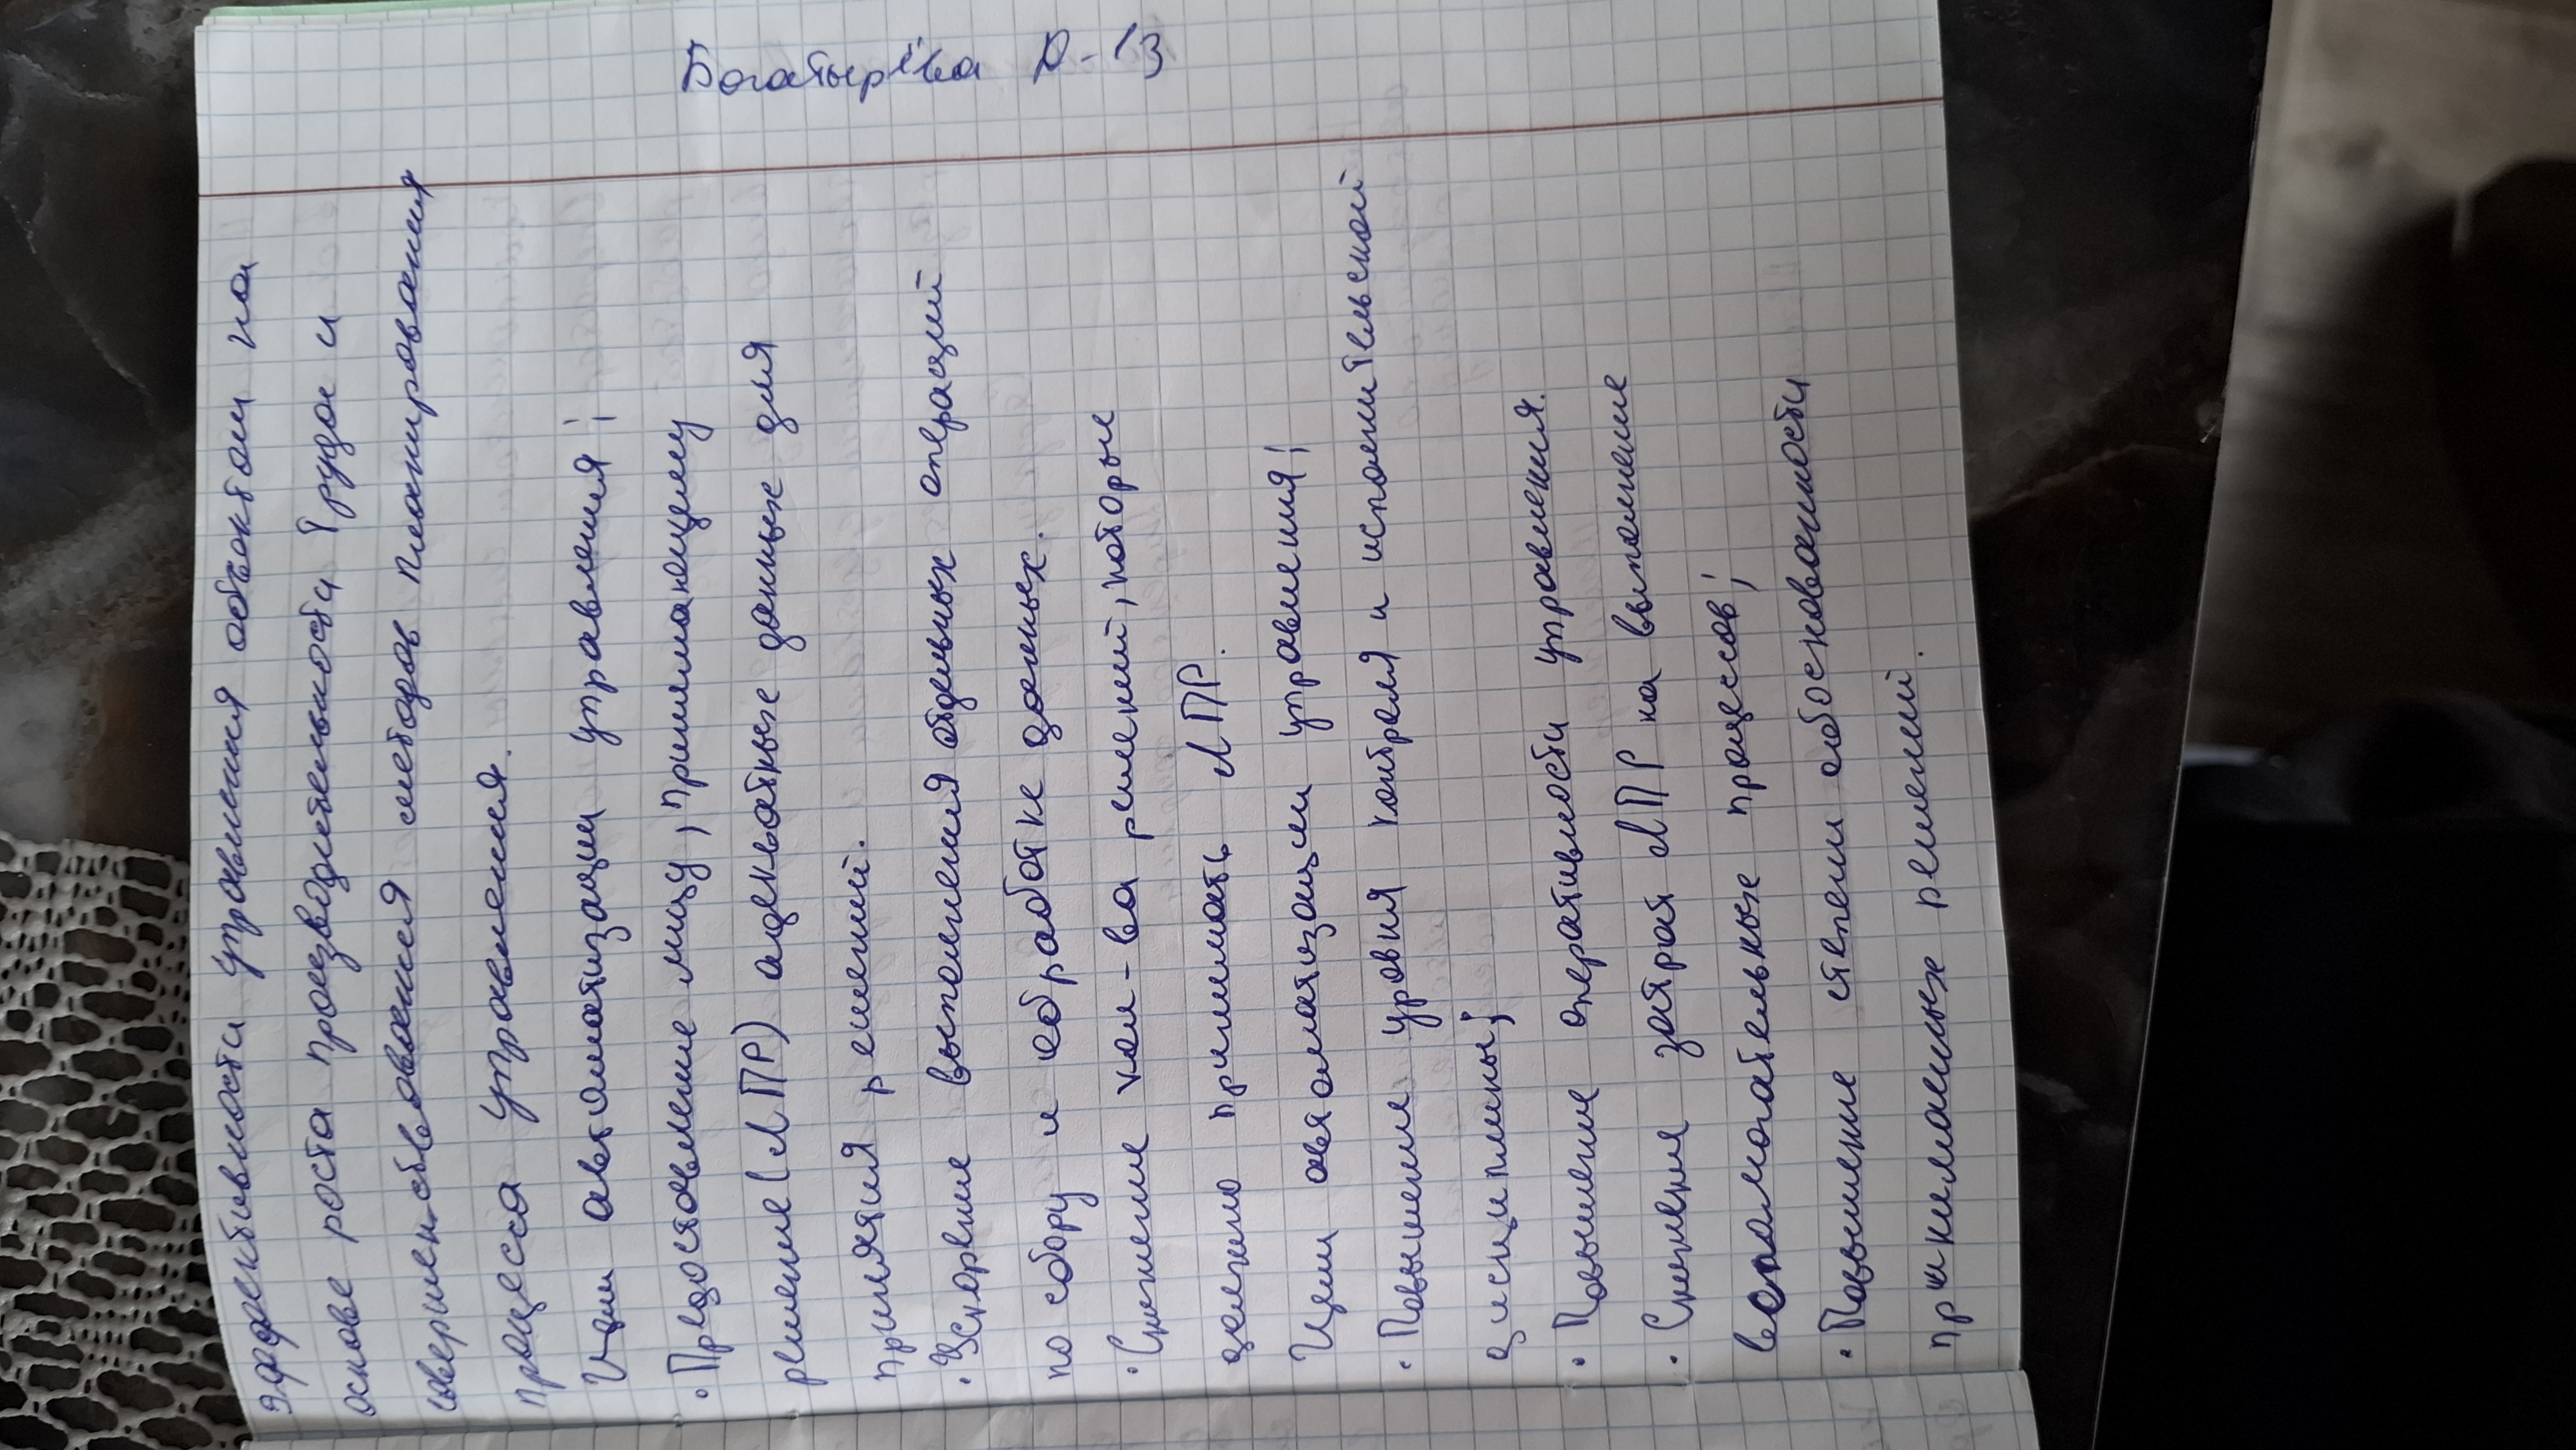 Богатырёва Д-13
эффективности управления обьектом на
основе роста производительности труда и
совершенствования методов планирования
процесса управления.
Цели автоматизации управления;
• Предоставление лицу, принимающему
решение (ЛПР) адекватные данных для
принятия решений.
• Ускорение выполнения отдельных операций
по сбору и обработке данных.
• Снижение кол-ва решений, которые
должно принимать ЛПР.
Цели автоматизации управления;
• Повышение уровня контроля и исполнительской
дисциплины;
• Повышение оперативности управления.
• Снижения затрат ЛПР на выполнение
вспомогательных процессов;
• Повышение степени обоснованности
принимаемых решений.